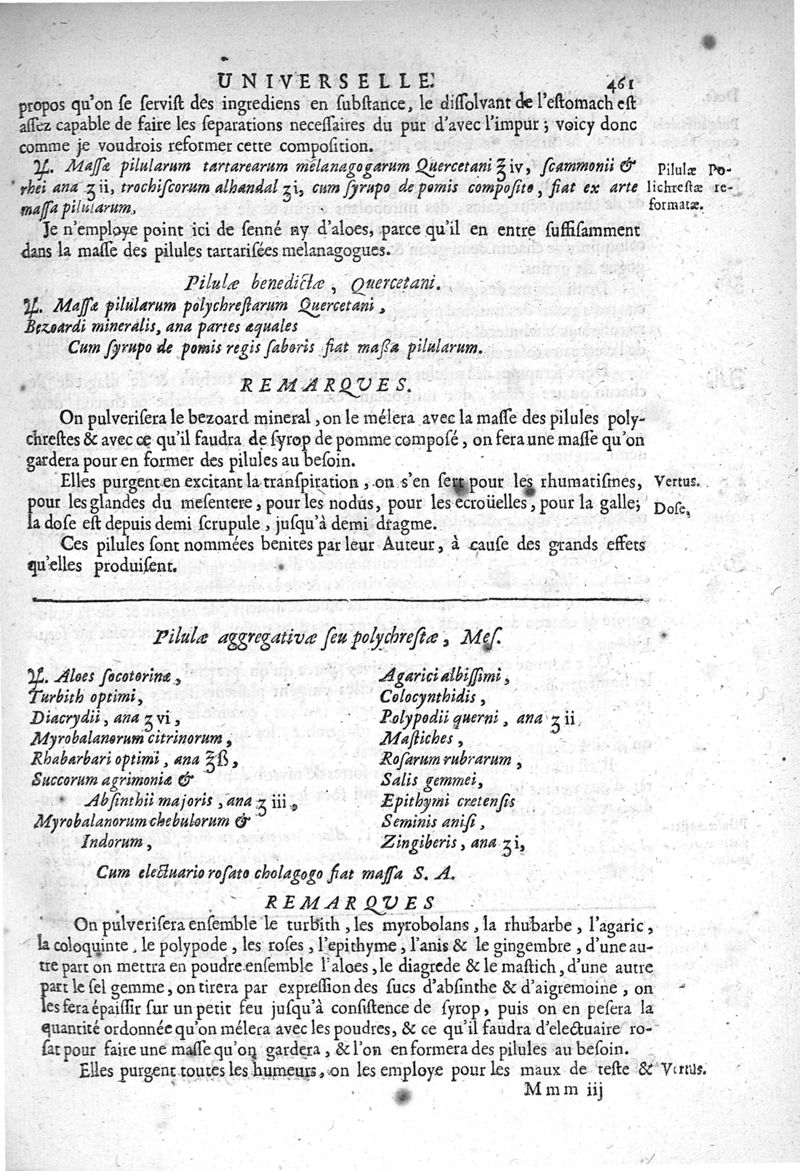 UNIVERSELLE. 461
propos qu'on se servist des ingrediens en substance, le dissolvant de l'estomach est
assez capable de faire les separations necessaires du pur d'avec l'impur; voicy donc
comme je voudrois reformer cette composition.
℞. Massæ pilularum tartarearum melanagogarum Quercetani ℥iv, scammonii &
rhei ana ʒii, trochiscorum alhandal ʒi, cum syrupo de pomis composito, fiat ex arte
massa pilularum,
Pilulæ Po-
lichrestæ re-
formatæ.
Je n'employe point ici de senné ny d'aloes, parce qu'il en entre suffisamment
dans la masse des pilules tartarisées melanagogues.
Pilulæ benedictæ, Quercetani.
℞. Massæ pilularum polychrestarum Quercetani,
Bezoardi mineralis, ana partes æquales
Cum syrupo de pomis regis saboris fiat massa pilularum.
REMARQUES.
On pulverisera le bezoard mineral, on le mélera avec la masse des pilules poly-
chrestes & avec ce qu'il faudra de syrop de pomme composé, on fera une masse qu'on
gardera pour en former des pilules au besoin.
Elles purgent en excitant la transpiration, on s'en sert pour les rhumatismes, Vertus.
pour les glandes du mesentere, pour les nodus, pour les ecroüelles, pour la galle; Dose,
la dose est depuis demi scrupule, jusqu'à demi dragme.
Ces pilules sont nommées benites par leur Auteur, à cause des grands effets
qu'elles produisent.
Pilulæ aggregativæ seu polychrestæ, Mes.
℞. Aloes socotorinæ,
Turbith optimi,
Diacrydii, ana ʒvi,
Myrobalanorum citrinorum,
Rhabarbari optimi, ana ℥ß,
Succorum agrimoniæ &
Absinthii majoris, ana ʒiii,
Myrobalanorum chebulorum &
Indorum,
Agarici albissimi,
Colocynthidis,
Polypodii querni, ana ʒii
Mastiches,
Rosarum rubrarum,
Salis gemmei,
Epithymi cretensis
Seminis anisi,
Zingiberis, ana ʒi,
Cum electuario rosato cholagogo fiat massa S. A.
REMARQUES
On pulverisera ensemble le turbith, les myrobolans, la rhubarbe, l'agaric,
la coloquinte, le polypode, les roses, l'epithyme, l'anis & le gingembre, d'une au-
tre part on mettra en poudre ensemble l'aloes, le diagrede & le mastich, d'une autre
part le sel gemme, on tirera par expression des sucs d'absinthe & d'aigremoine, on
les fera épaissir sur un petit feu jusqu'à consistence de syrop, puis on en pesera la
quantité ordonnée qu'on mélera avec les poudres, & ce qu'il faudra d'electuaire ro-
sat pour faire une masse qu'on gardera, & l'on en formera des pilules au besoin.
Elles purgent toutes les humeurs, on les employe pour les maux de teste & Vertus.
Mmm iij